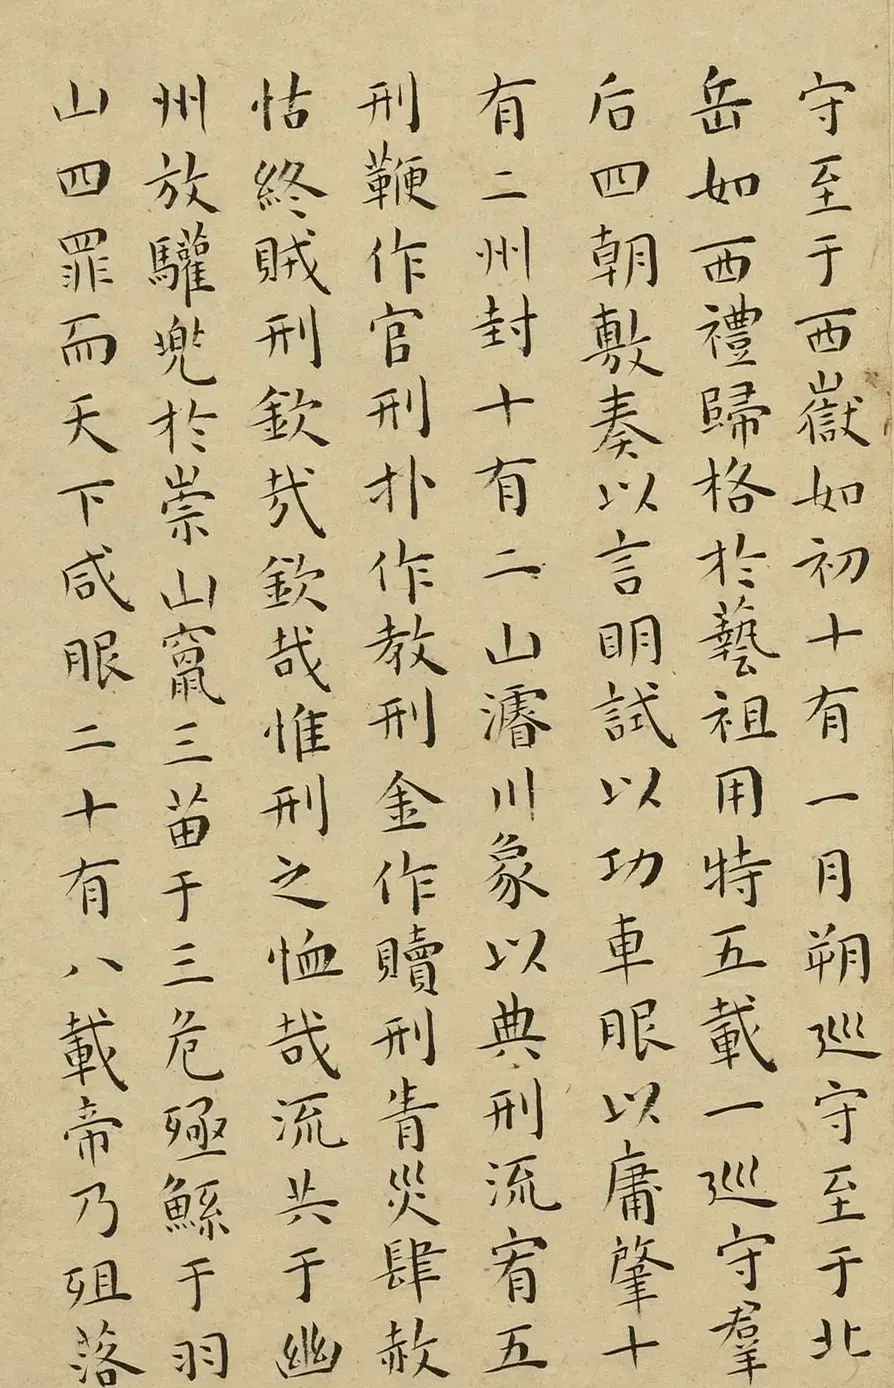 守至于西嶽如初十有一月朔巡守至于北
岳如西禮歸格於藝祖用特五載一巡守羣
后四朝敷奏以言明試以功車服以庸肇十
有二州封十有二山濬川象以典刑流宥五
刑鞭作官刑朴作教刑金作贖刑眚災肆赦
怙終賊刑欽哉欽哉惟刑之恤哉流共于幽
州放驩兜於崇山竄三苗于三危殛鯀于羽
山四罪而天下咸服二十有八載帝乃殂落